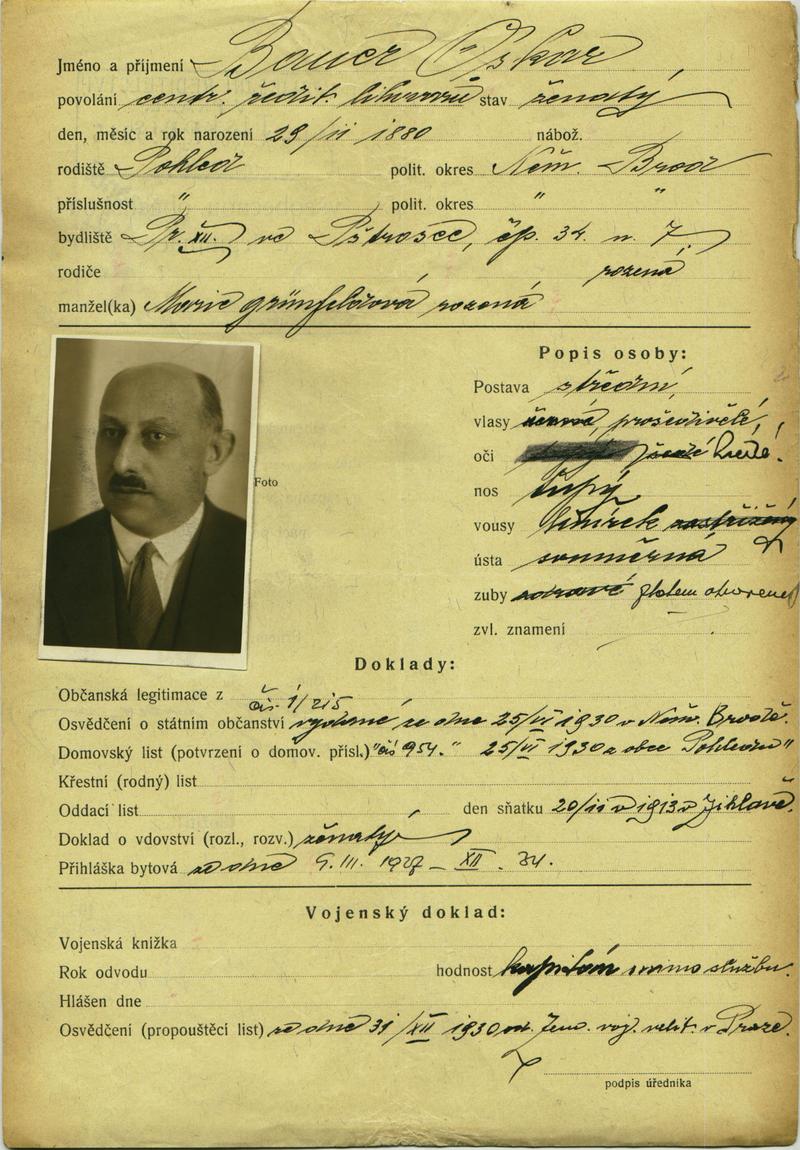 Jméno a příjmení Bauer Oskar,
povolání centr. ředit. lihovarů stav ženatý
den, měsíc a rok narození 29/II 1880 nábož.
rodiště Pohled polit. okres Něm. Brod
příslušnost " polit. okres " "
bydliště Pr. XII. ve Pštrosce, čp. 34. n. 7.
rodiče rozená
manžel(ka) Marie Grünfeldová rozená
Popis osoby:
Postava střední,
vlasy černé, prošedivělé,
oči šedé hnědé.
nos tupý
vousy knírek zastřižený
Foto
ústa souměrná
zuby zdravé zlatem
zvl. znamení
Doklady:
Občanská legitimace z
čís. 1/215
Osvědčení o státním občanství vydané ze dne 25/VI 1930 v Něm. Brodě.
Domovský list (potvrzení o domov. přísl.) "čís 954." 25/VI 1930 z obce Pohledu"
Křestní (rodný) list
Oddací list den sňatku 20/II 1913 v Jihlavě.
Doklad o vdovství (rozl., rozv.) ženatý
Přihláška bytová ze dne 9. III. 1927 – XII. 34.
Vojenský doklad:
Vojenská knížka
Rok odvodu hodnost kapitán mimo službu.
Hlášen dne
Osvědčení (propouštěcí list) ze dne 31/XII 1930 od Zem. voj. velit. v Praze.
podpis úředníka